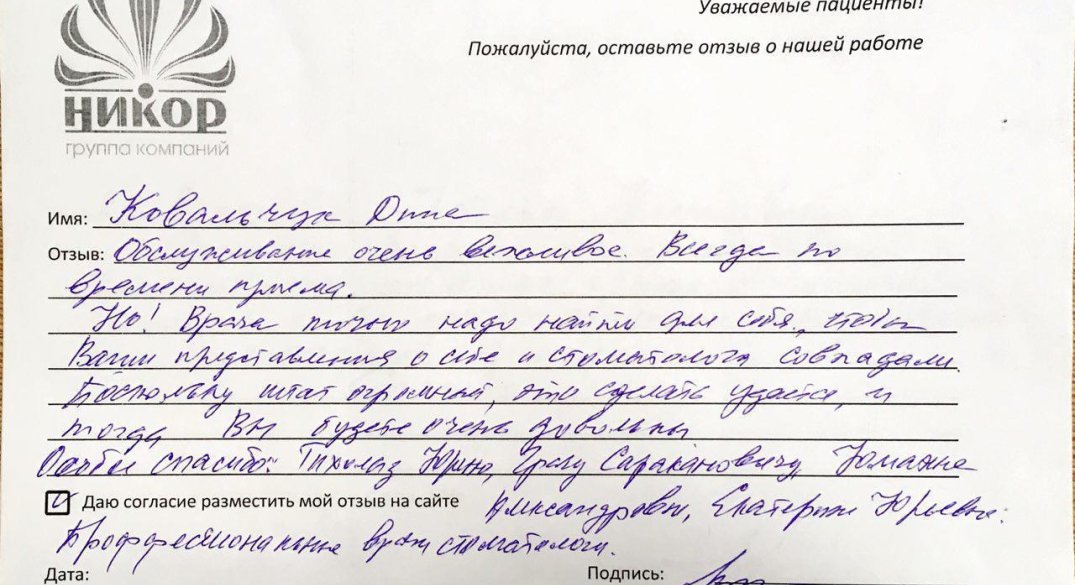 Уважаемые пациенты!
Пожалуйста, оставьте отзыв о нашей работе
НИКОР
группа компаний
Имя: Ковальчук
Отзыв: Обслуживание очень вежливое. Всегда по
времени приема.
Но! Врача точно надо найти для себя, чтобы
Ваши представления о себе и стоматолога совпадали.
Поскольку штат огромный, это сделать удастся, и
тогда Вы будете очень довольны
Особое спасибо: Тихолаз
Даю согласие разместить мой отзыв на сайте
Александровне, Екатерине Юрьевне.
Проффесиональные врачи стоматологи.
Дата:
Подпись: